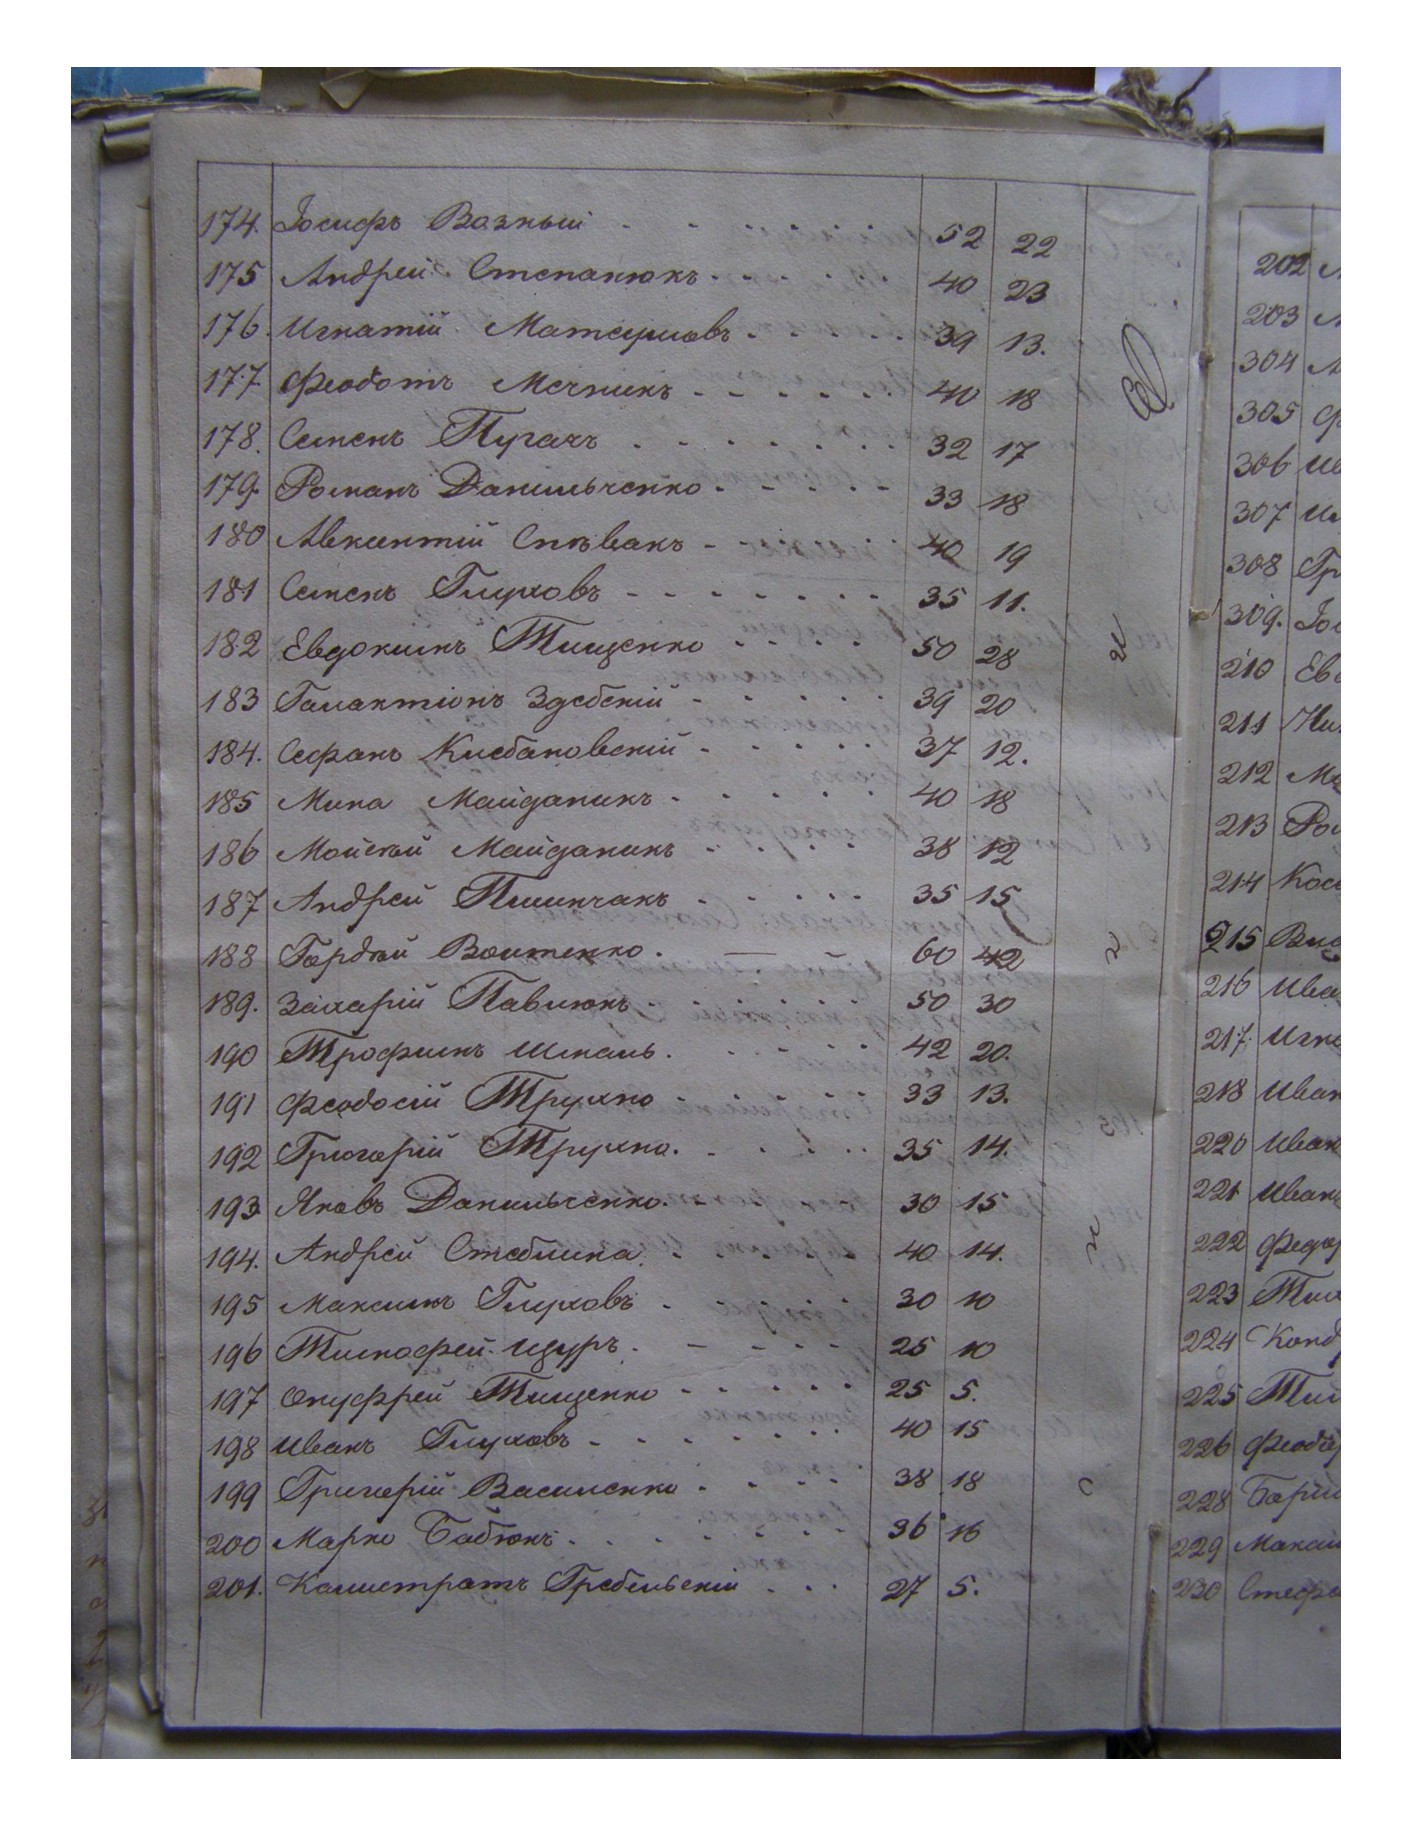 174. Іосифъ Возный 52 22
175 Андрей Степанюкъ 40 23
176. Игнатій 39 13.
177. Феодотъ Мечникъ 40 18
178. Семенъ Пугачъ 32 17
179. Романъ Данильченко 33 18
180 Авксентій Спѣвакъ 40 19
181 Семенъ Глуховъ 35 11.
182 Евдокимъ Тищенко 50 28
183 Галактіонъ Здебскій 39 20
184. Стефанъ 37 12.
185 Мина Майданикъ 40 18
186 Мойсей Майданикъ 38 12
187 Андрей 35 15
188 Гордѣй Войтенко. 60 42
189. Захарій Павлюкъ 50 30
190 Трофимъ Шкаль. 42 20.
191 Феодосій Трухно 33 13.
192 Григорій Трухно. 35 14.
193 Яковъ Данильченко. 30 15
194. Андрей Стеблина. 40 14.
195 Максимъ Глуховъ 30 10
196 Тимофей Щуръ. 25 10
197 Онуфрей Тищенко 25 5.
198 Иванъ Глуховъ 40 15
199 Григорій Василенко 38 18
200 Марко Бабюкъ. 36 16
201. Калистратъ Гребельскій 27 5.
202
203
304
305
306
307
308
309.
210
211
212
213
214
215
216
217.
218
220
221
222
223
224
225
226
228
229
230